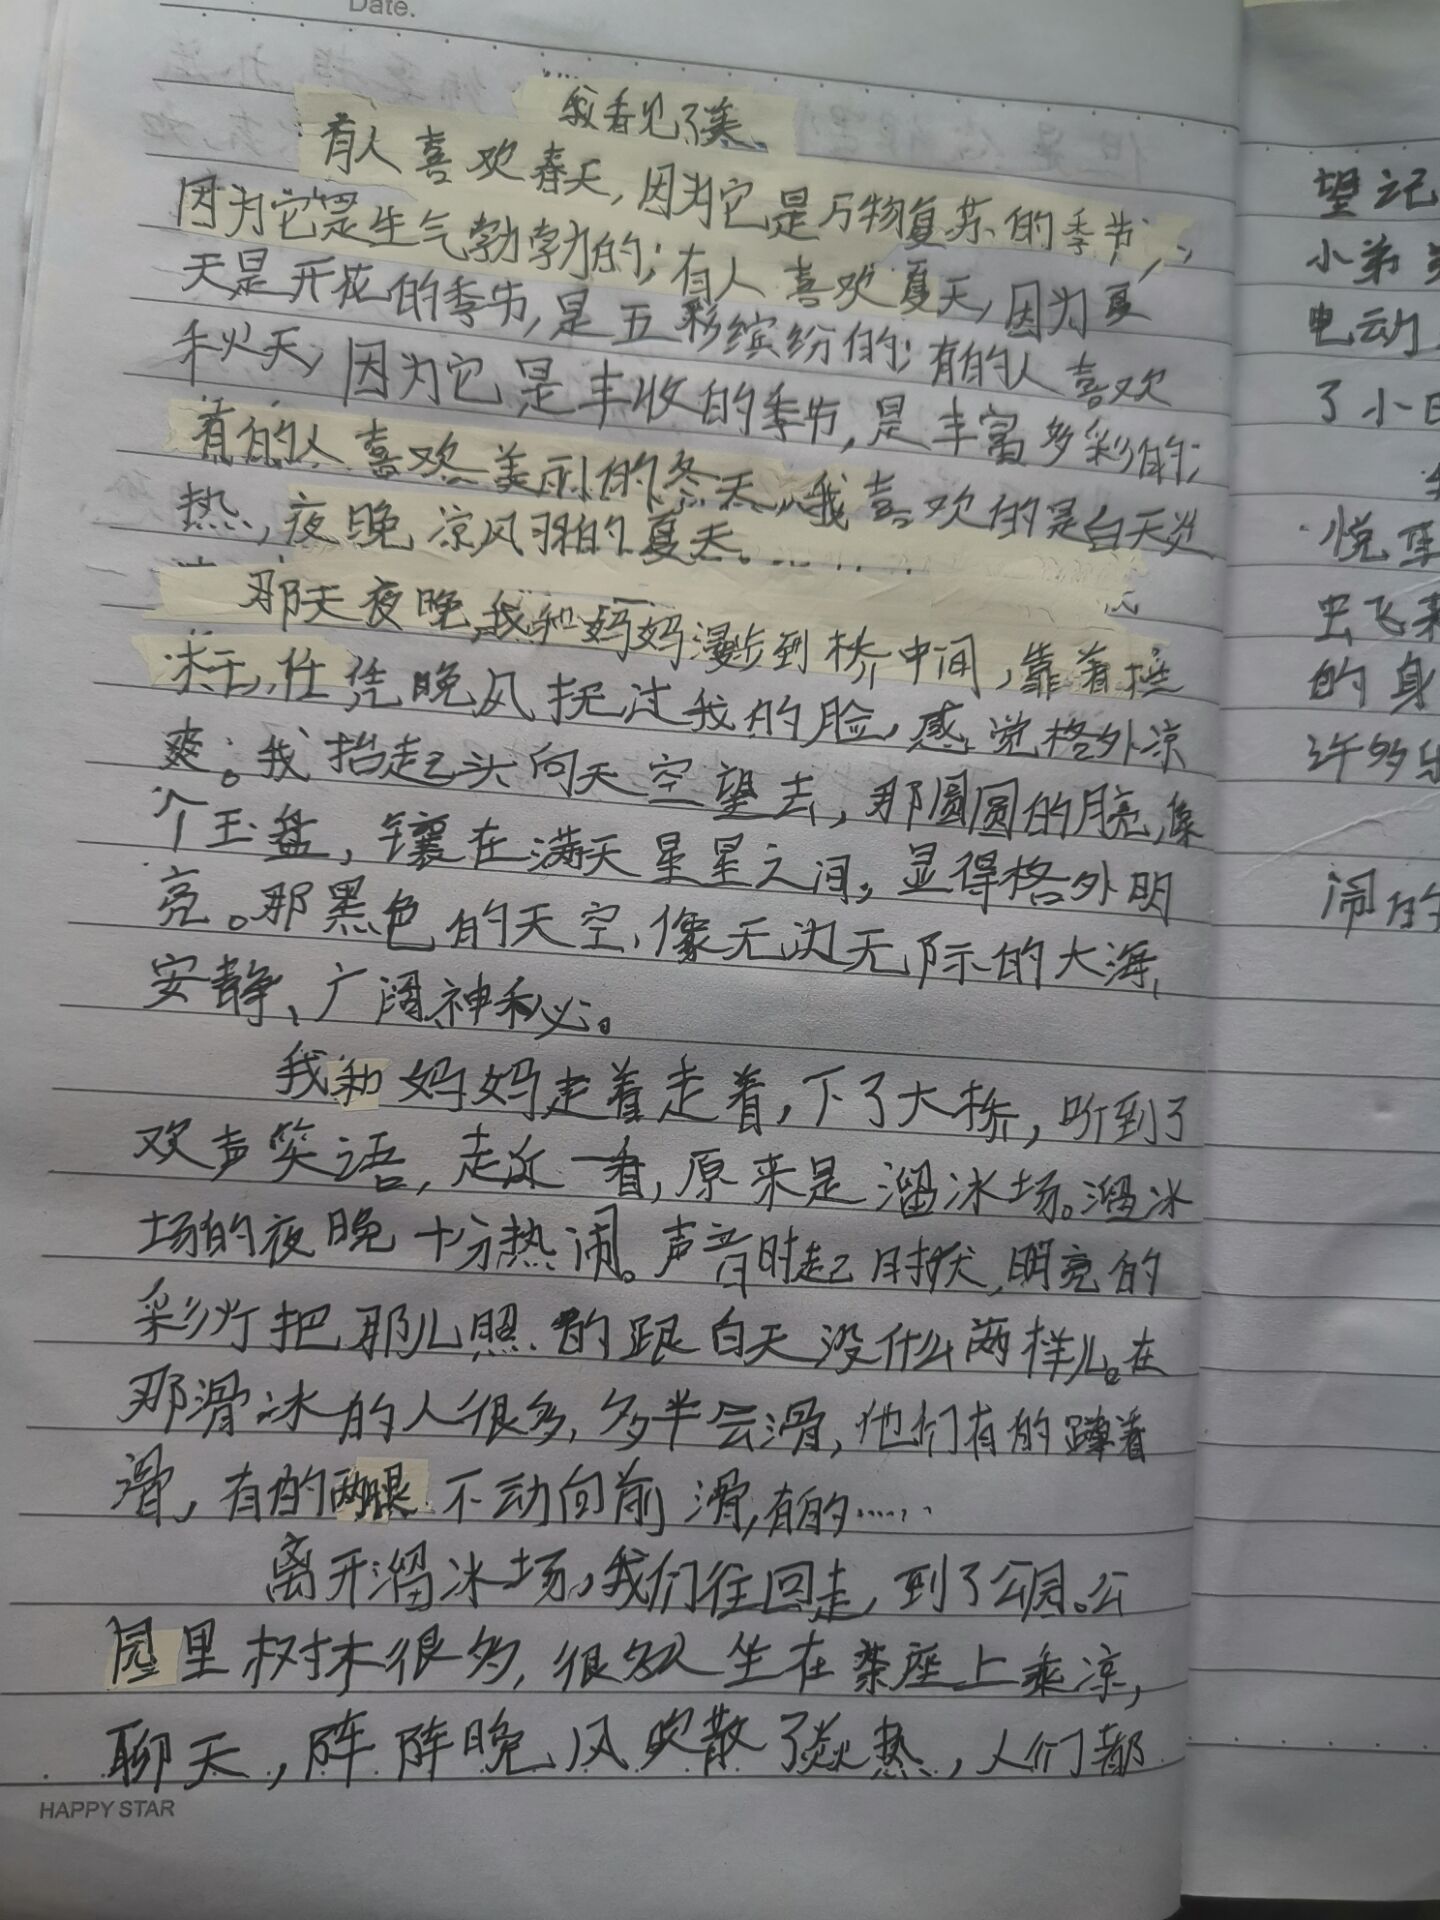 Date.
我看见了美
有人喜欢春天,因为它是万物复苏的季节,
因为它是生气勃勃的;有人喜欢夏天,因为夏
天是开花的季节,是五彩缤纷的;有的人喜欢
秋天,因为它是丰收的季节,是丰富多彩的;
有的人喜欢美丽的冬天。我喜欢的是白天炎
热,夜晚凉风习习的夏天。
那天夜晚,我和妈妈漫步到桥中间,靠着栏
杆,任凭晚风抚过我的脸,感觉格外凉
爽。我抬起头向天空望去,那圆圆的月亮,像
个玉盘,镶在满天星星之间,显得格外明
亮。那黑色的天空,像无边无际的大海,
安静、广阔、神秘。
我和妈妈走着走着,下了大桥,听到了
欢声笑语,走近一看,原来是溜冰场。溜冰
场的夜晚十分热闹。声音时起时伏,明亮的
彩灯把那儿照的跟白天没什么两样儿。在
那滑冰的人很多,多半会滑,他们有的蹲着
滑,有的两眼不动向前滑,有的……
离开溜冰场,我们往回走,到了公园。公
园里树木很多,很多人坐在茶座上乘凉,
聊天,阵阵晚风吹散了炎热,人们都
HAPPY STAR
望记
小弟
电动
了小
悦
虫飞来
的身
许多
闹的